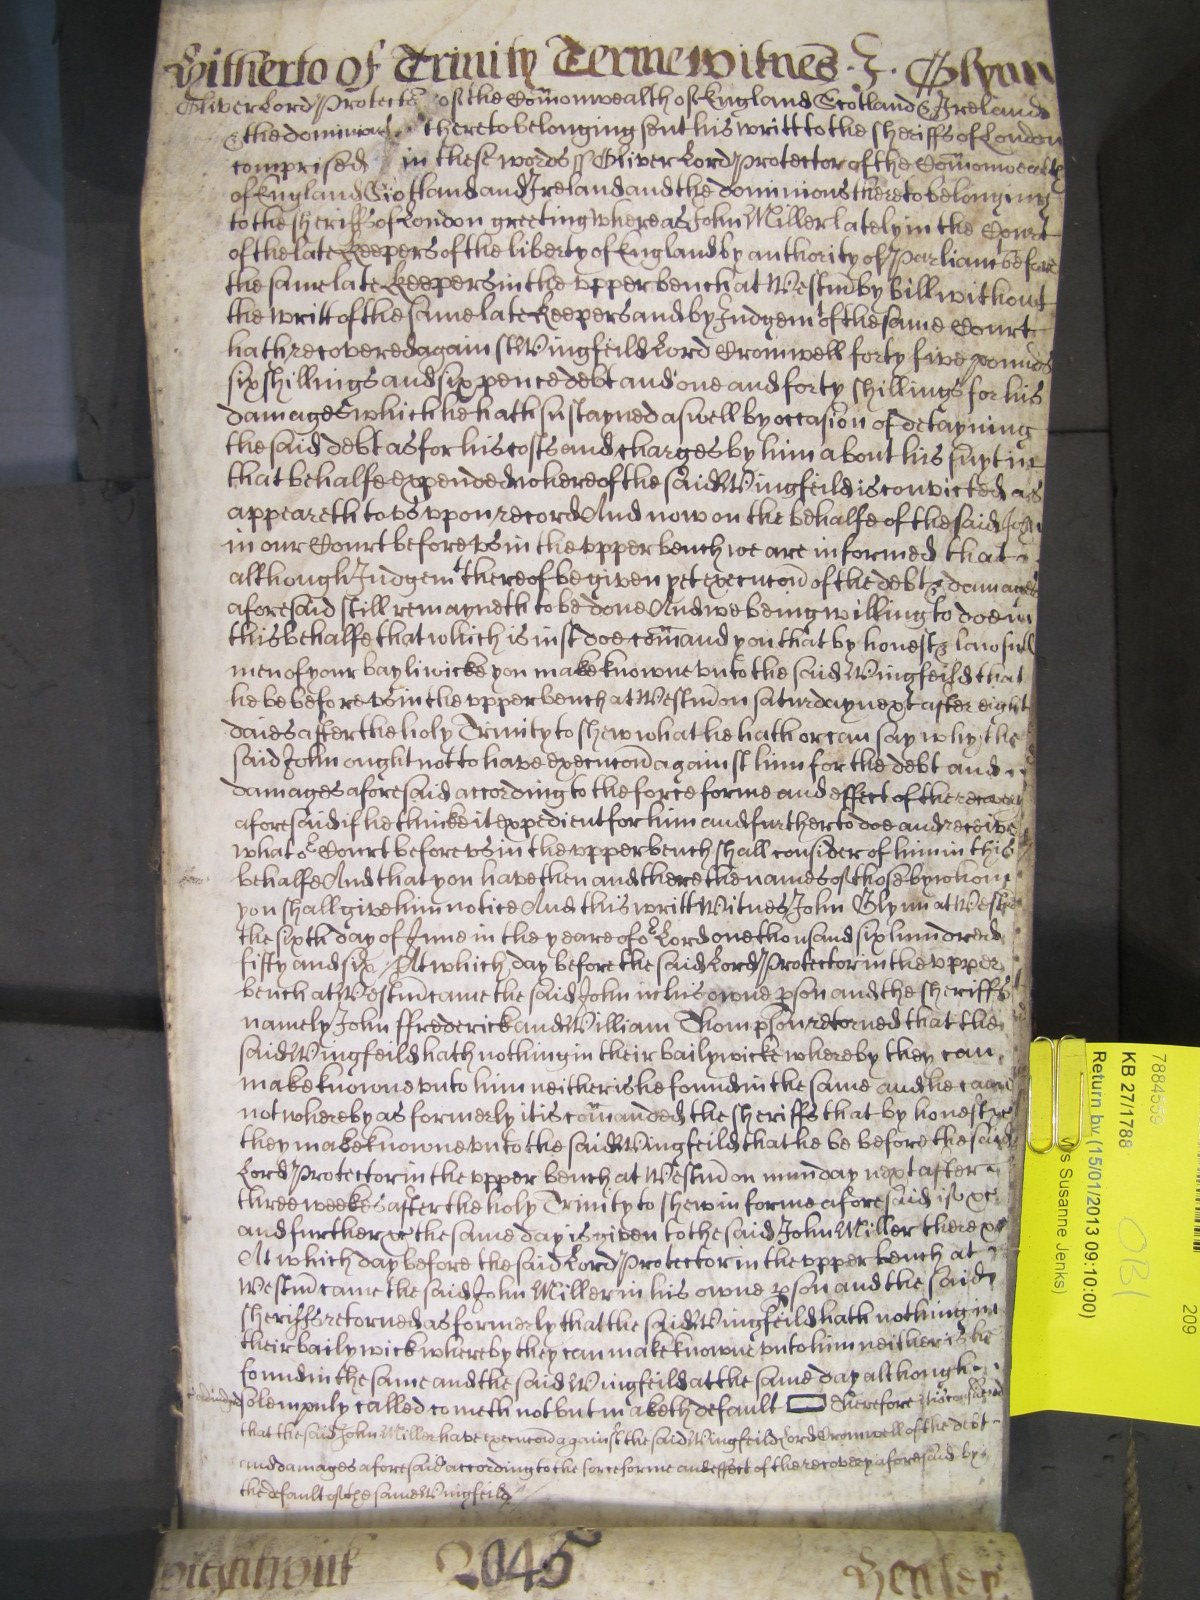 Hitherto of Trinity Terme witnes. Glynn
Oliver Lord Protector of the Comonwealth of England Scotland & Ireland
& the dominions thereto belonging sent his writt to the sheriffs of London
comprised in these words ss Oliver Lord Protector of the Comonwealth
of England Scotland and Ireland and the dominions thereto belonging
to the sheriffs of London greeting whereas John Miller lately in the Court
of the late Keepers of the liberty of England by authority of Parliamt before
the same late Keepers in the upper bench at Westm by bill without
the writt of the same late Keepers and by Judgemt of the same Court
hath recovered against Wingfeild Lord Cromwell forty five pounds
six shillings and six pence debt and one and forty shillings for his
damages which he hath sustayned aswell by occasion of detayning
the said debt as for his costs and charges by him about his suyt in
that behalfe expended whereof the said Wingfeild is convicted as
appeareth to vs vpon record And now on the behalfe of the said John
in our Court before vs in the vpper bench we are informed that
although Judgemt thereof be given yet execucon of the debt & damages
aforesaid still remayneth to be done And we being willing to doe in
this behalfe that which is iust doe comand you that by honest & lawfull
men of your bayliwicke you make knowne vnto the said Wingfeild that
he be before vs in the vpper bench at Westm on saturday next after eight
daies after the holy Trinity to shew what he hath or can say why the
said John ought not to have execucon against him for the debt and
damages aforesaid according to the force forme and effect of the recovery
aforesaid if he thincke it expedient for him and further to doe and receive
what or Court before vs in the vpper bench shall consider of him in this
behalfe And that you have then and there the names of those by whom
you shall give him notice And this writt Witnes John Glynn at Westm
the sixth day of June in the yeare of or Lord one thousand six hundred
fifty and six At which day before the said Lord Protector in the vpper
bench at Westm came the said John in his owne pson and the sheriffs
namely John ffrederick and William Thompson retorned that the
said Wingfeild hath nothing in their bailywicke whereby they can
make knowne vnto him neither is he found in the same and he came
not whereby as formerly it is comanded the sheriffs that by honest &c
they make knowne vnto the said Wingfeild that he be before the said
Lord Protector in the vpper bench at Westm on munday next after
three weekes after the holy Trinity to shew in forme aforesaid if &c
and further &c the same day is given to the said John Miller there &c
At which day before the said Lord Protector in the vpper bench at
Westm came the said John Miller in his owne pson and the said
sheriffs retorned as formerly that the said Wingfeild hath nothing in
their bailywick whereby they can make knowne vnto him neither is he
found in the same and the said Wingfeild at the same day although
solempnly called cometh not but maketh default Therefore it is considered
that the said John Miller have execucon against the said Wingfeild Lord Cromwell of the debt
and damages aforesaid according to the force forme and effect of the recovery aforesaid by
the default of the same Wingfeild
2045
7884559
KB 27/1788
Return by (15/01/2013 09:10:00)
Susanne Jenks)
OB1
209